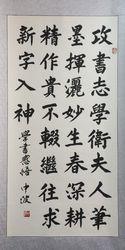 攻書志學衛夫人筆
墨揮灑妙生春深耕
精作貴不輟繼往求
新字入神
學書感悟